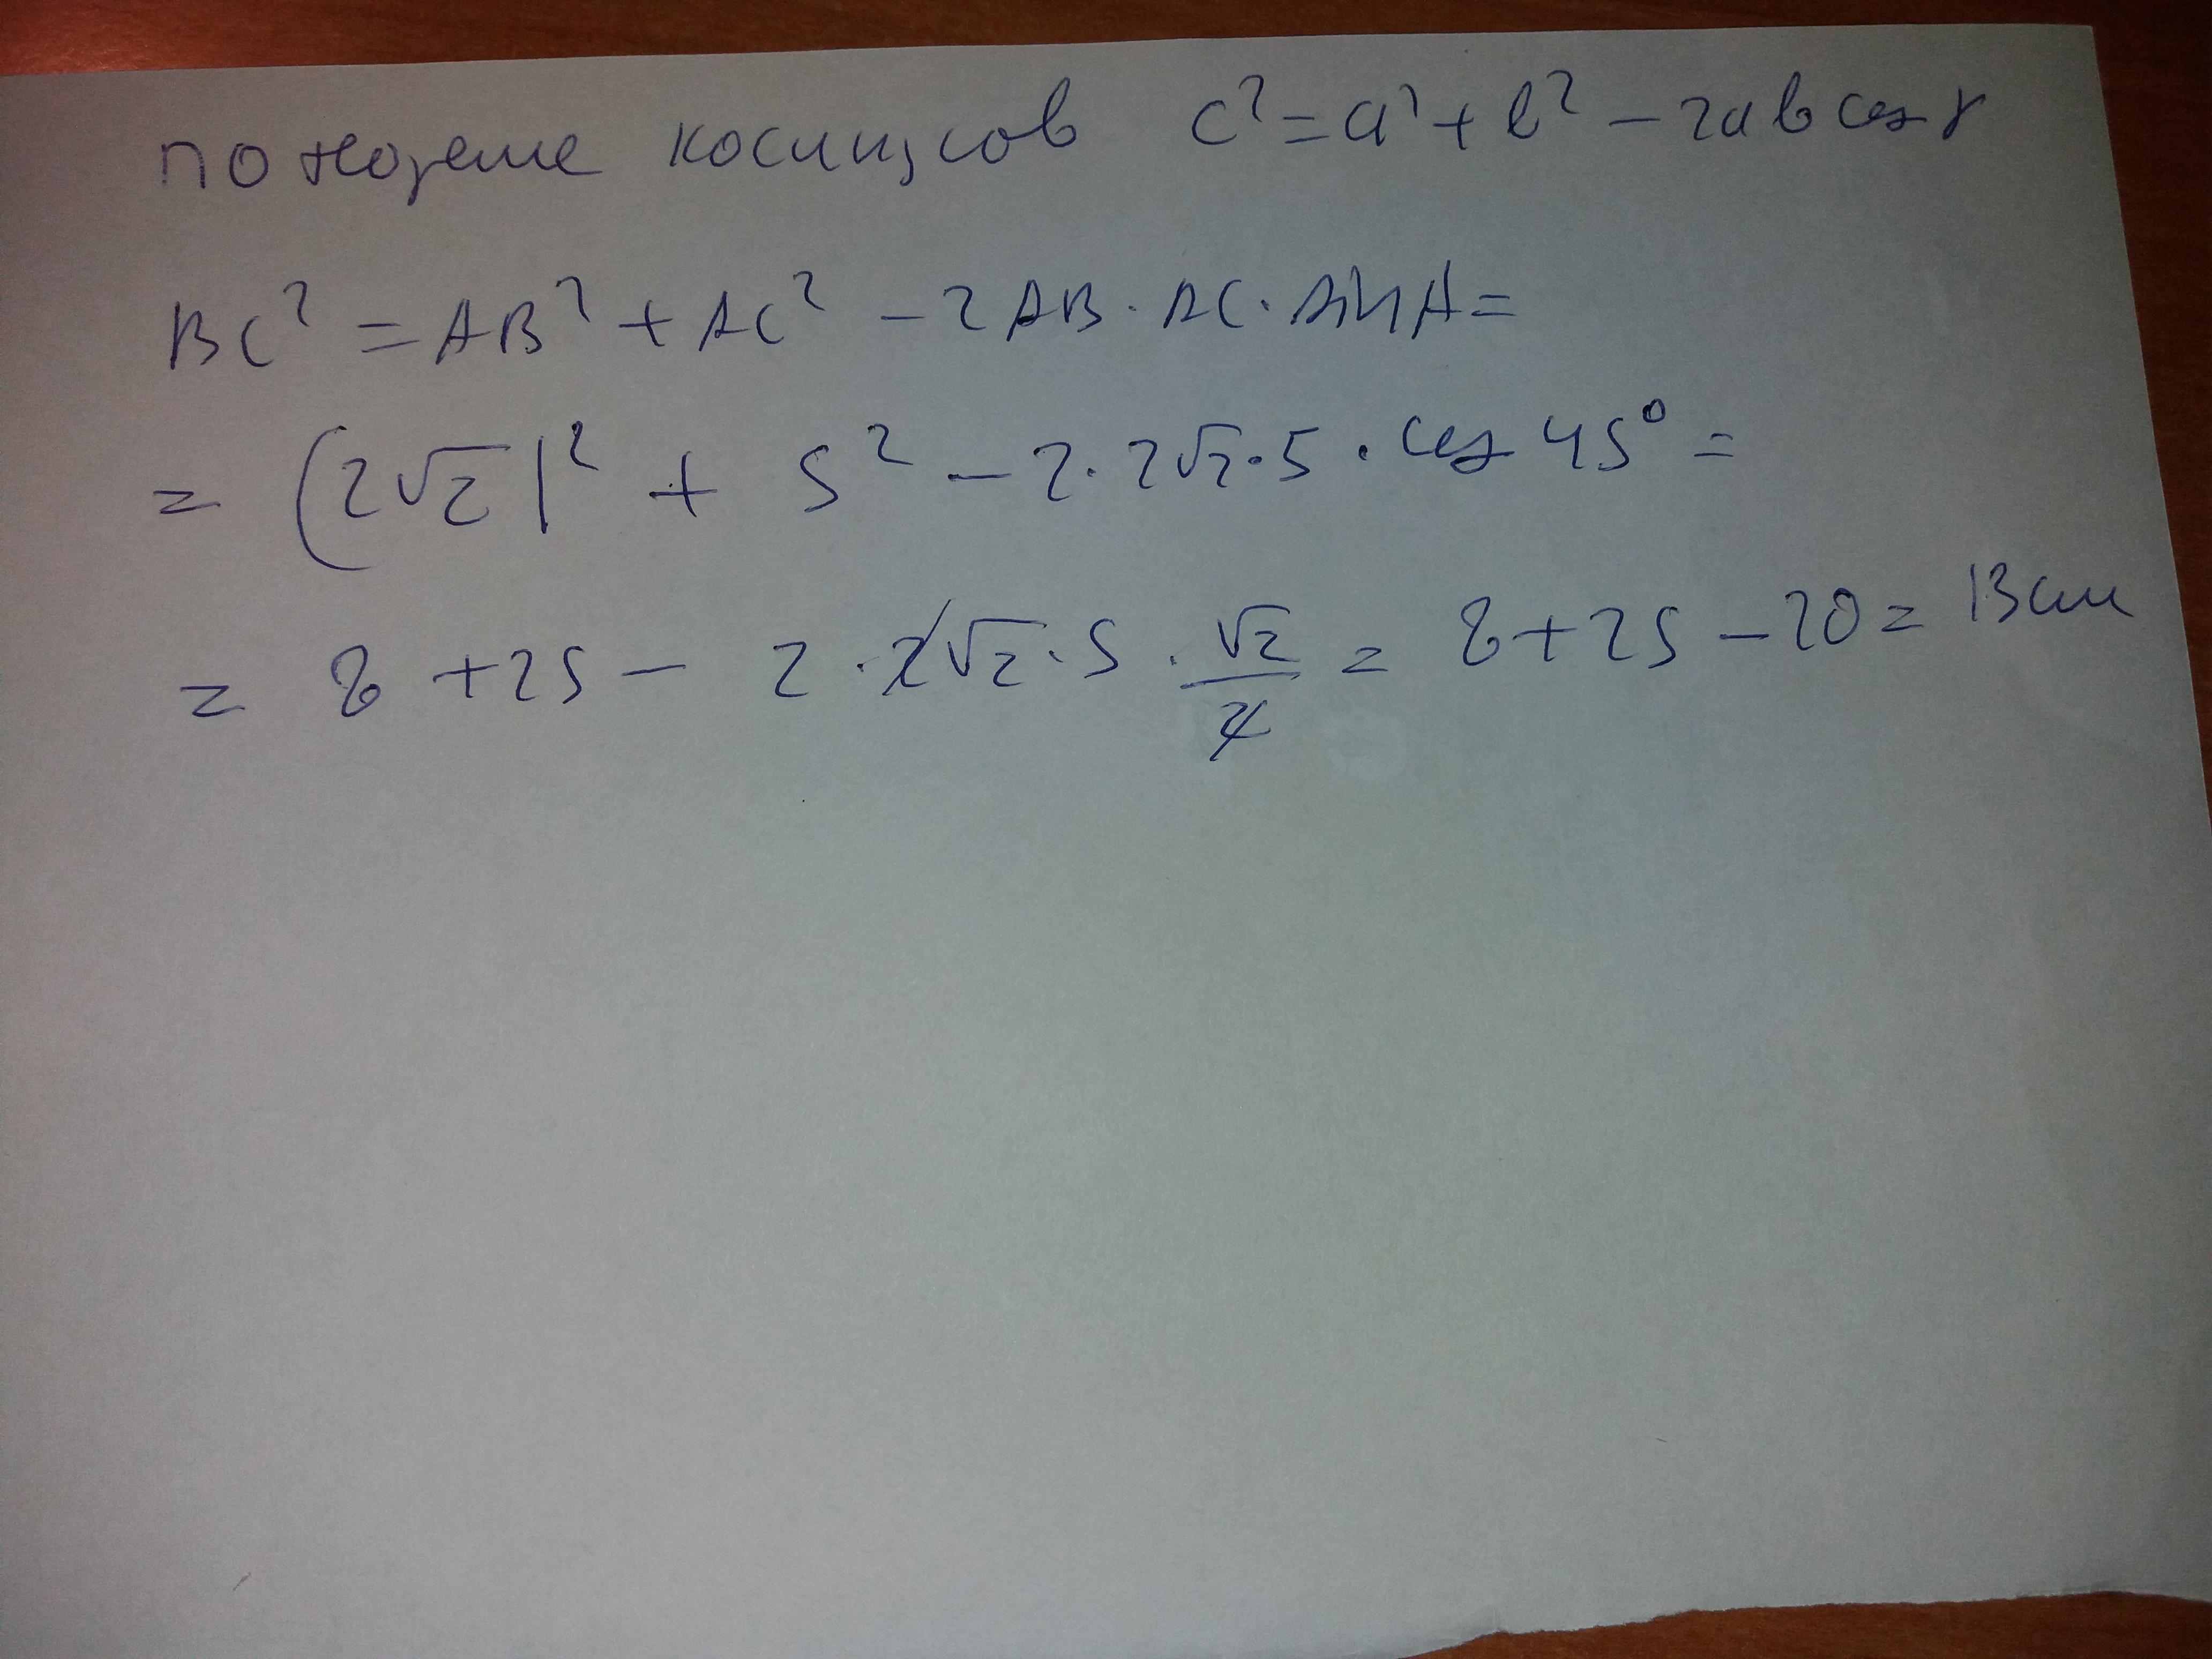 по теореме косинусов c² = a² + b² - 2ab cos γ
BC² = AB² + AC² - 2AB · AC · sin A =
= (2√2)² + 5² - 2 · 2√2 · 5 · cos 45° =
= 8 + 25 - 2 · 2√2 · 5 · √2/2 = 8 + 25 - 20 = 13 см